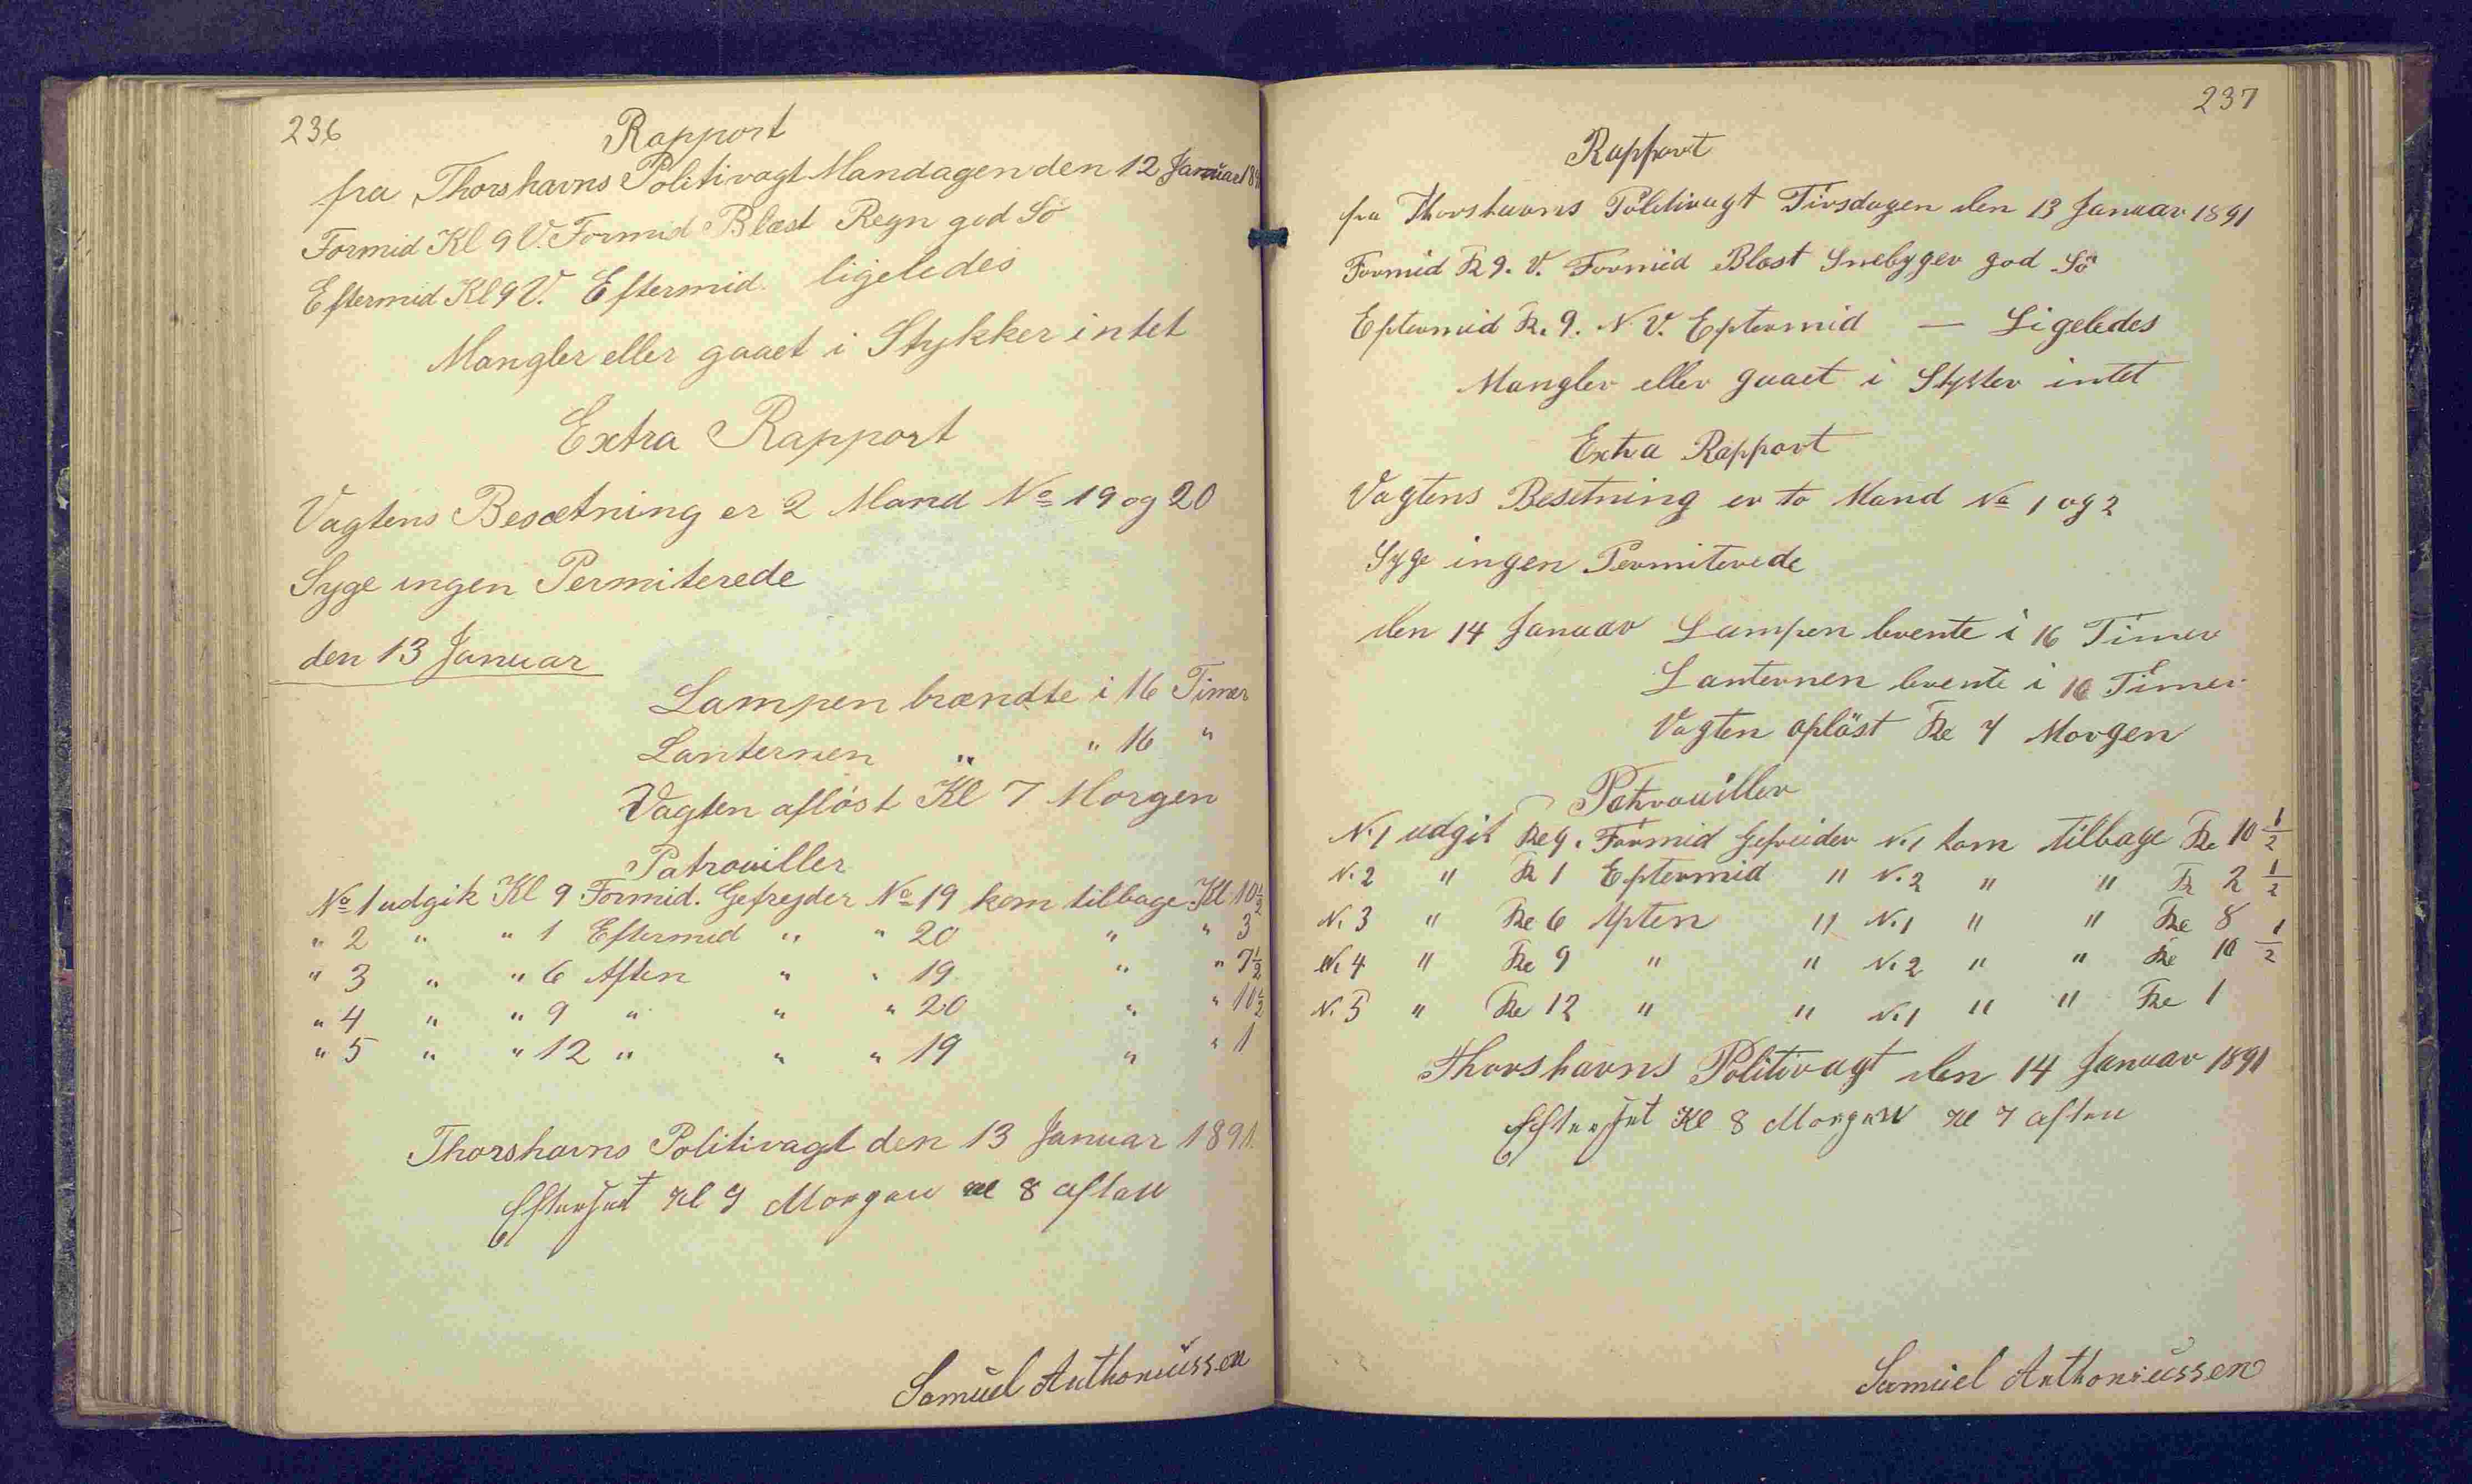 236
Rapport
fra Thorshavns Politivagt Mandagen den 12 Januar 189
Formid Kl 9 V. Formid Blæst Regn god Sö
Eftermid Kl 9 V. Eftermid. ligeledes
Mangler eller gaaet i Stykker intet
Extra Rapport
Vagtens Besætning er 2 Mand No 19 og 20
Syge ingen Permiterede
den 13 Januar
Lampen brændte i 16 Timer
Lanternen " " 16 "
Vagten aflöst Kl 7 Morgen
Patrouiller
No 1 udgik Kl 9 Formid. Gefrejder No 19 kom tilbage Kl 10½
" 2 " " 1 Eftermid " " 20 " " 3
" 3 " " 6 Aften " " 19 " " 7½
" 4 " " 9 " " " 20 " " 10½
" 5 " " 12 " " " 19 " " 1
Thorshavns Politivagt den 13 Januar 1891
Efterset Kl 9 Morgen Kl 8 aften
Samuel Anthoniussen
237
Rapport
fra Thorshavns Politivagt Tirsdagen den 13 Januar 1891
Formid K 9. V. Formid Blæst Snebyger god Sö
Eptermid K. 9. N. V. Eptermid — Ligeledes
Mangler eller gaaet i Stykker intet
Extra Rapport
Vagtens Besetning er to Mand No 1 og 2
Syge ingen Permiterede
den 14 Januar Lampen brente i 16 Timer
Lanternen brente i 16 Timer
Vagten aplöst Ke 7 Morgen
Patrouiller
N. 1 udgik Ke 9. Formid Gefreider N. 1 kom tilbage Ke 10 ½
N. 2 " K 1 Eptermid " N. 2 " " K 2 ½
N. 3 " Ke 6 Apten " N. 1 " " Ke 8
N. 4 " Ke 9 " " N. 2 " " Ke 10 ½
N. 5 " Ke 12 " " N. 1 " " Ke 1
Thorshavns Politivagt den 14 Januar 1891
Efterset Kl 8 Morgen Kl 7 aften
Samuel Anthoniussen